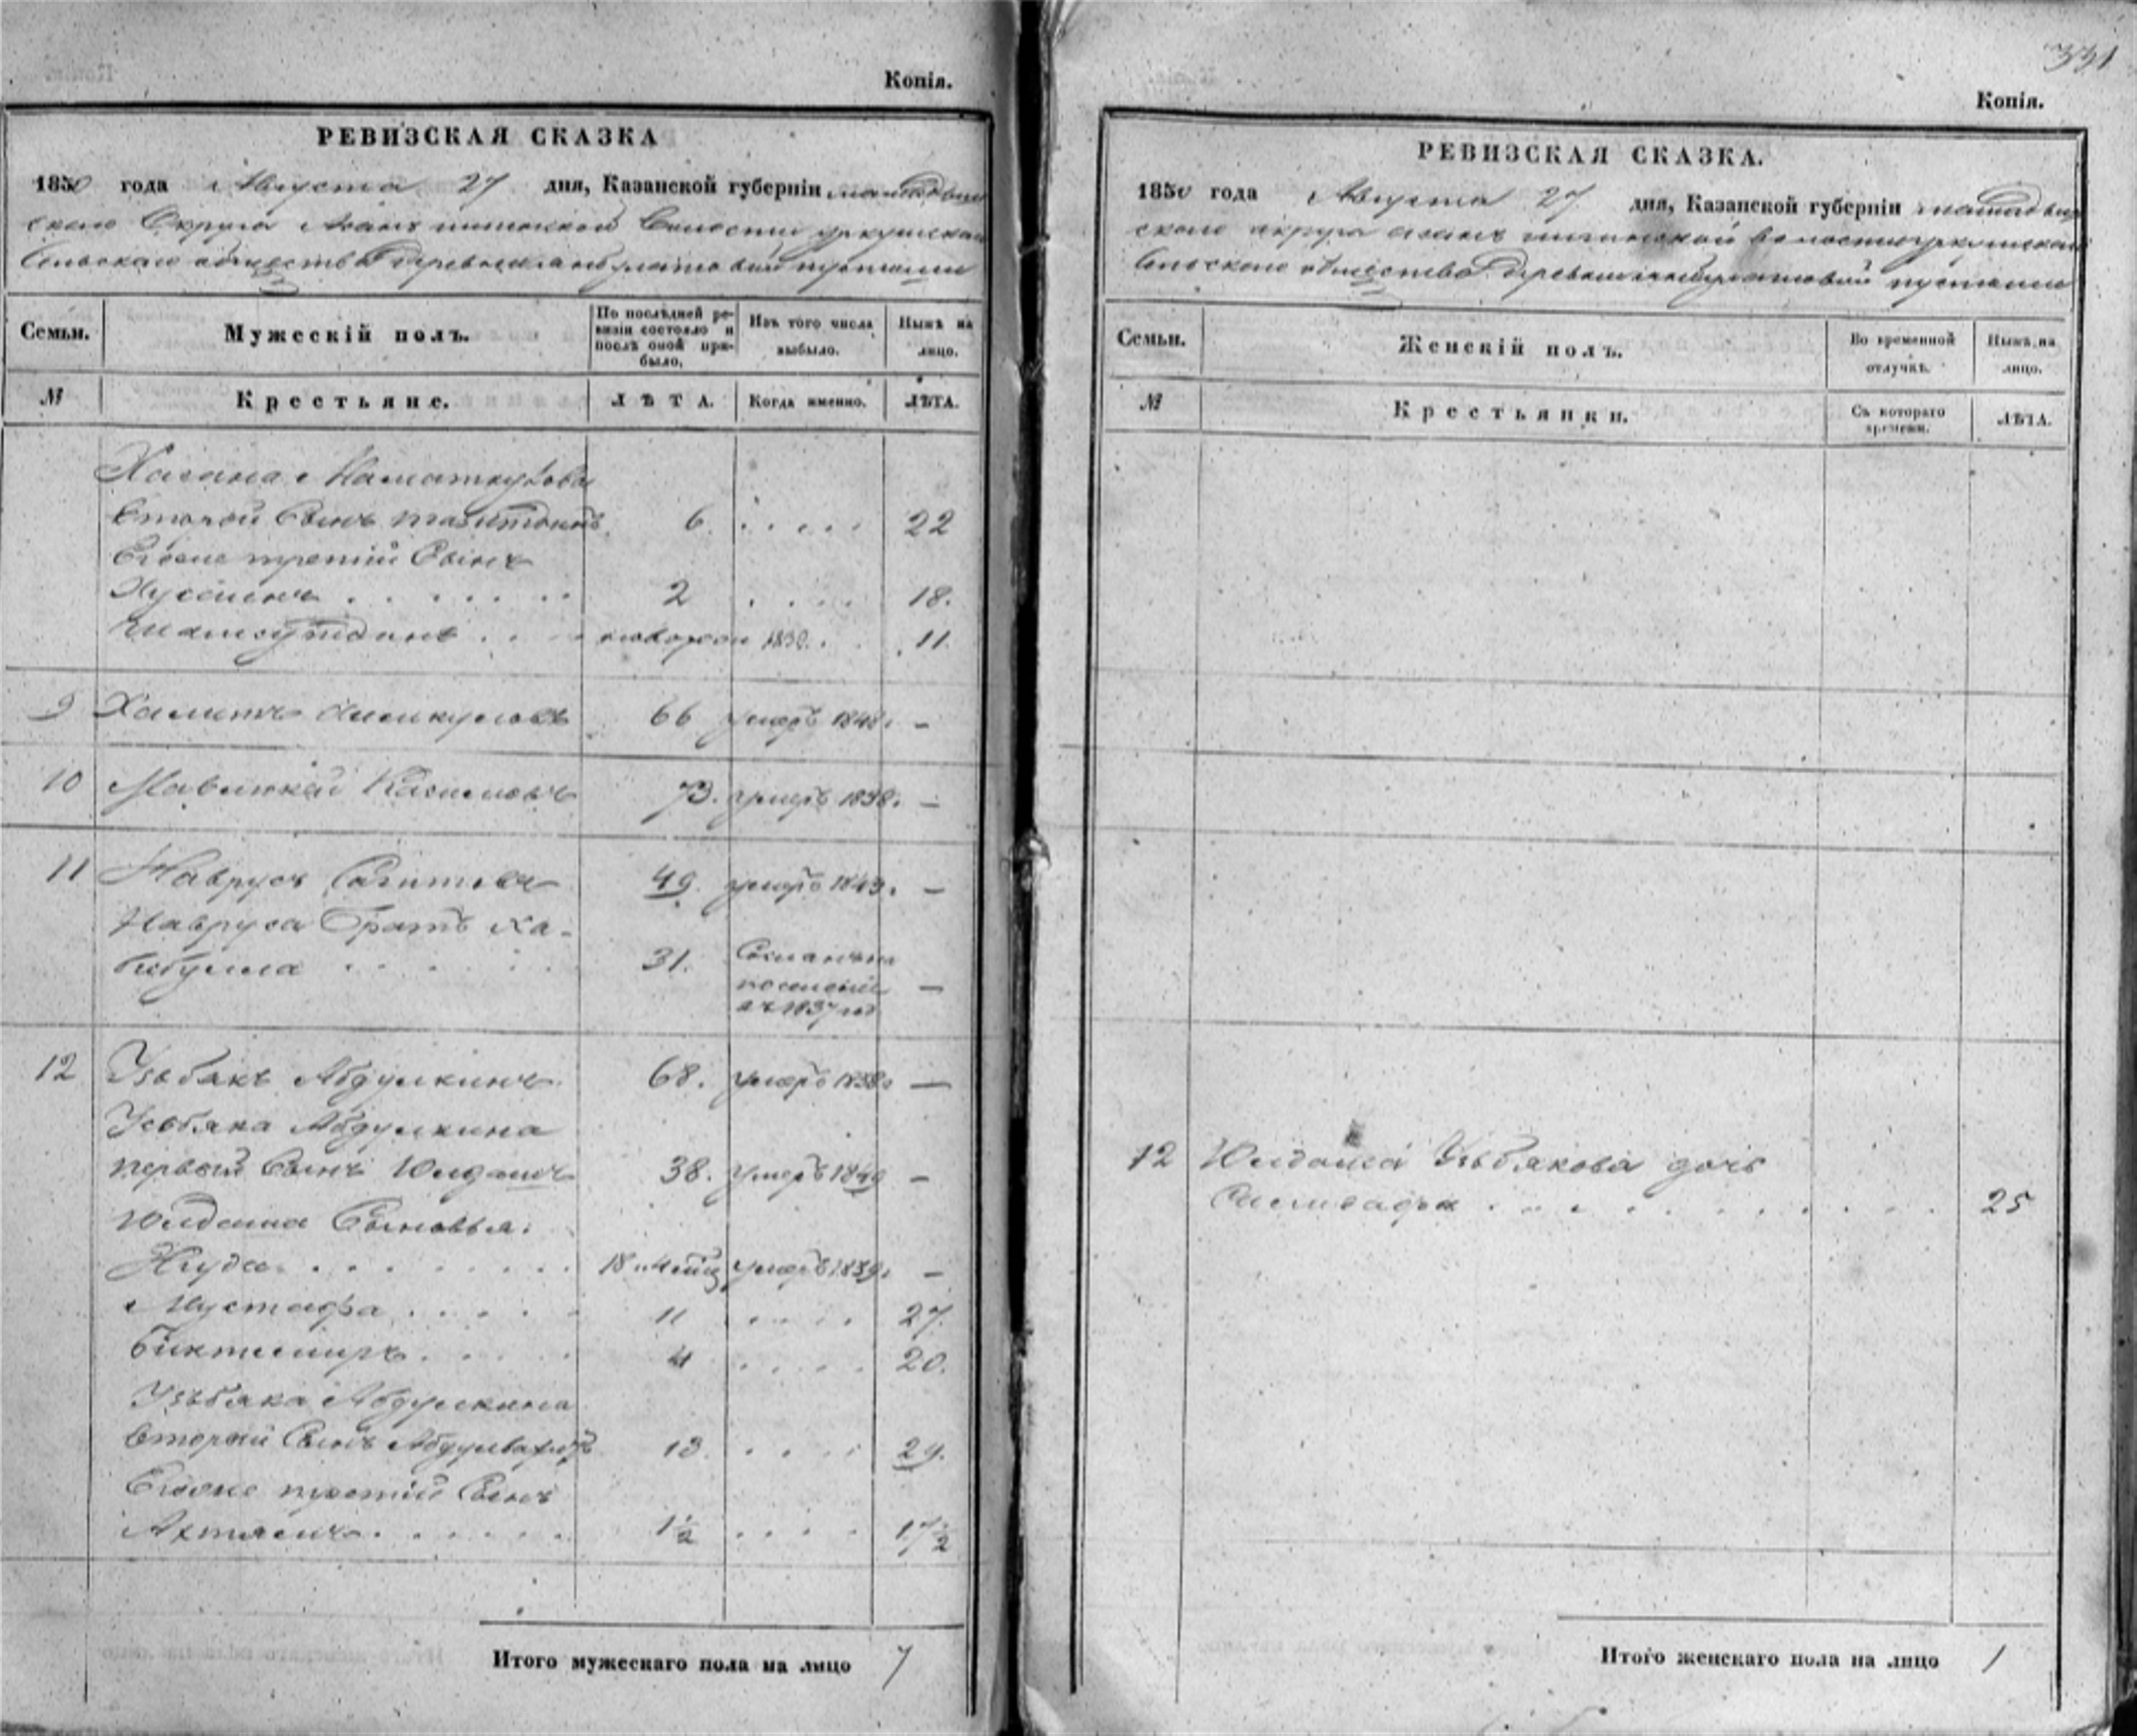 Копія.
РЕВИЗСКАЯ СКАЗКА
1850 года Августа 27 дня, Казанской губерніи мамадыш
скаго Округа Волости
Сельскаго общества Деревни пустоши
Семьи. Мужескій полъ. По послѣдней ре-визіи состояло и послѣ оной при-было. Изъ того числа выбыло. Нынѣ на лицо.
№ Крестьяне. ЛѢТА. Когда именно. ЛѢТА.
Хасана Маматкулова
второй Сынъ 6. 22
Его же третій Сынъ
Хусаинъ 2 18.
1839. 11.
9 Халитъ 66 умеръ 1848. –
10 Мавлюкай Касимовъ 73. умеръ 1838. –
11 Наврусъ Сагитовъ 49. умеръ 1843. –
Навруса братъ Ха-
бибулла 31. Сосланъ на
поселеніе –
въ 1837 год
12 Узьбякъ Абдулкинъ 68. умеръ 1838 –
Узьбяка Абдулкина
первой Сынъ Юлдашъ 38. умеръ 1849 –
Юлдаша Сыновья:
Худа 18 умеръ 1839. –
Мустафа 11 27.
Биктимиръ 4 20.
Узьбяка Абдулкина
второй Сынъ 13. 29.
Его же третій Сынъ
Ахтямъ 1½ 17½
Итого мужескаго пола на лицо 7
331
Копія.
РЕВИЗСКАЯ СКАЗКА.
1850 года Августа 27 дня, Казанской губерніи мамадыш
скаго округа волости
Сельскаго общества Деревни пустоши
Семьи. Женскій полъ. Во временной отлучкѣ. Нынѣ на лицо.
№ Крестьянки. Съ котораго времени. ЛѢТА.
12 Юлдаша Узьбякова дочь
25
Итого женскаго пола на лицо 1